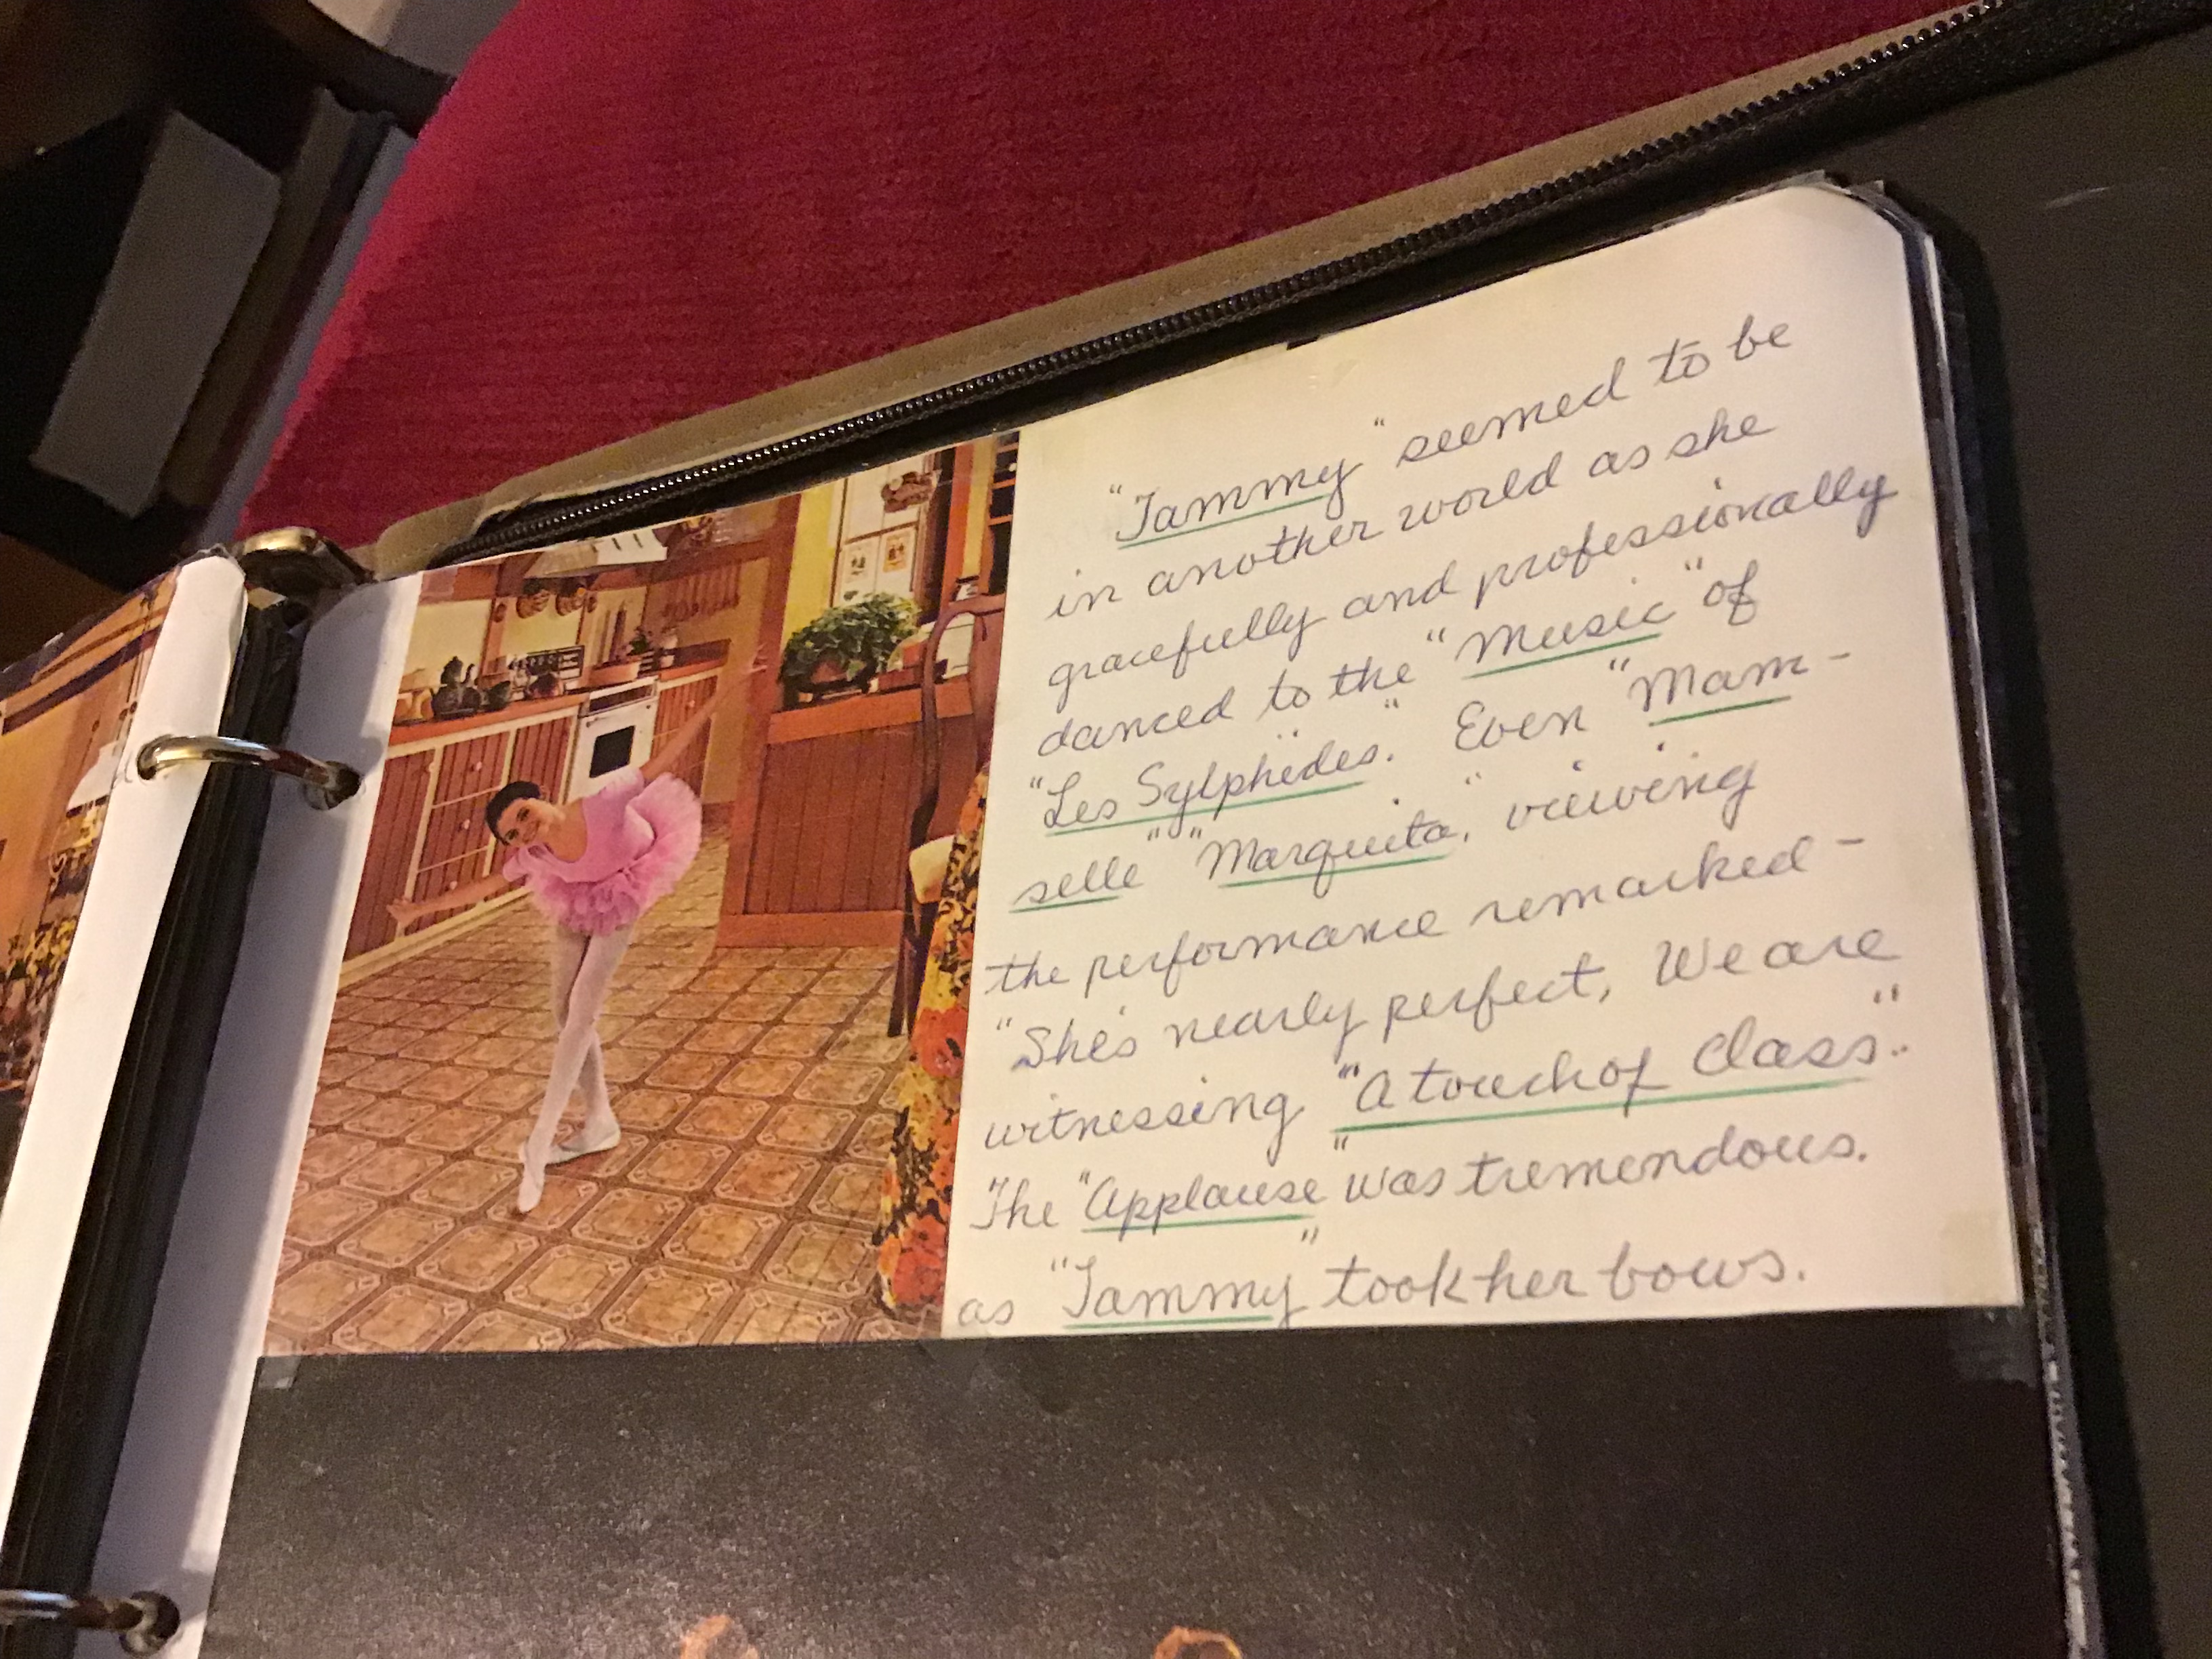 "Tammy" seemed to be
in another world as she
gracefully and professionally
danced to the "Music" of
"Les Sylphëdes." Even "Mam-
selle" "Marquita," viewing
the performance remarked-
"She's nearly perfect, We are
witnessing "'A touch of Class."
The "Applause" was tremendous.
as "Tammy" took her bows.